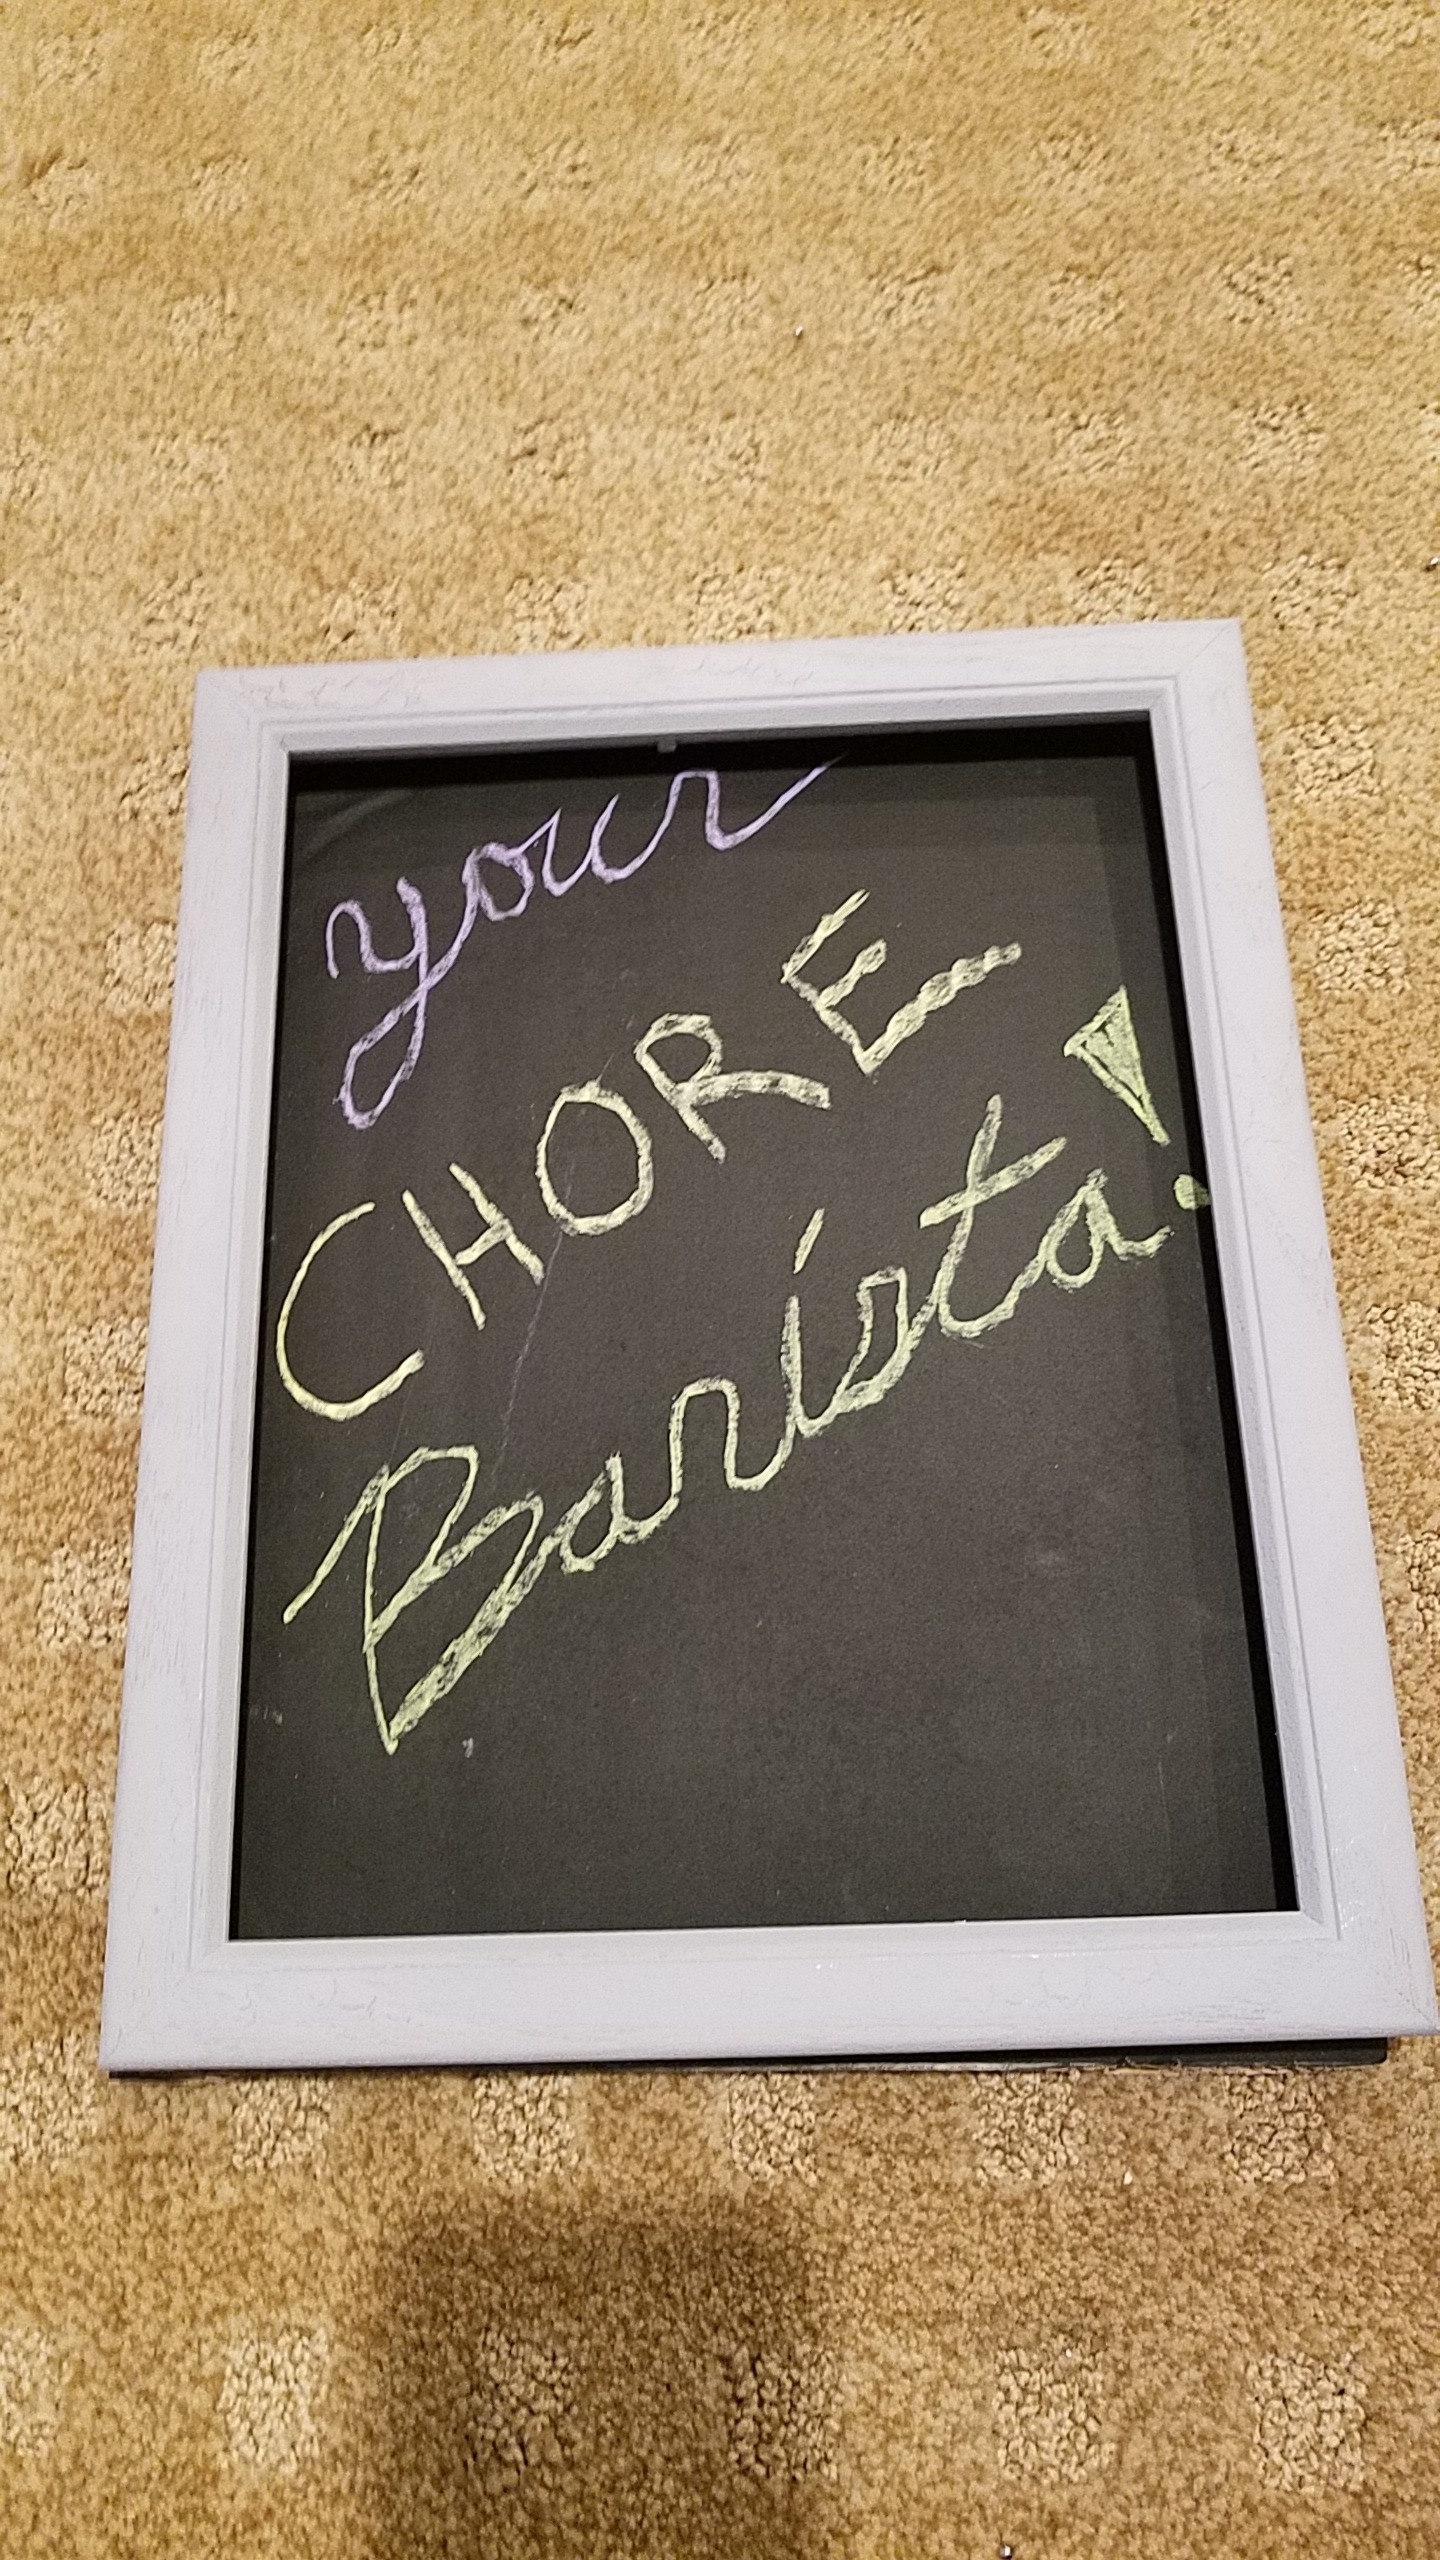 your
CHORE
Barista!